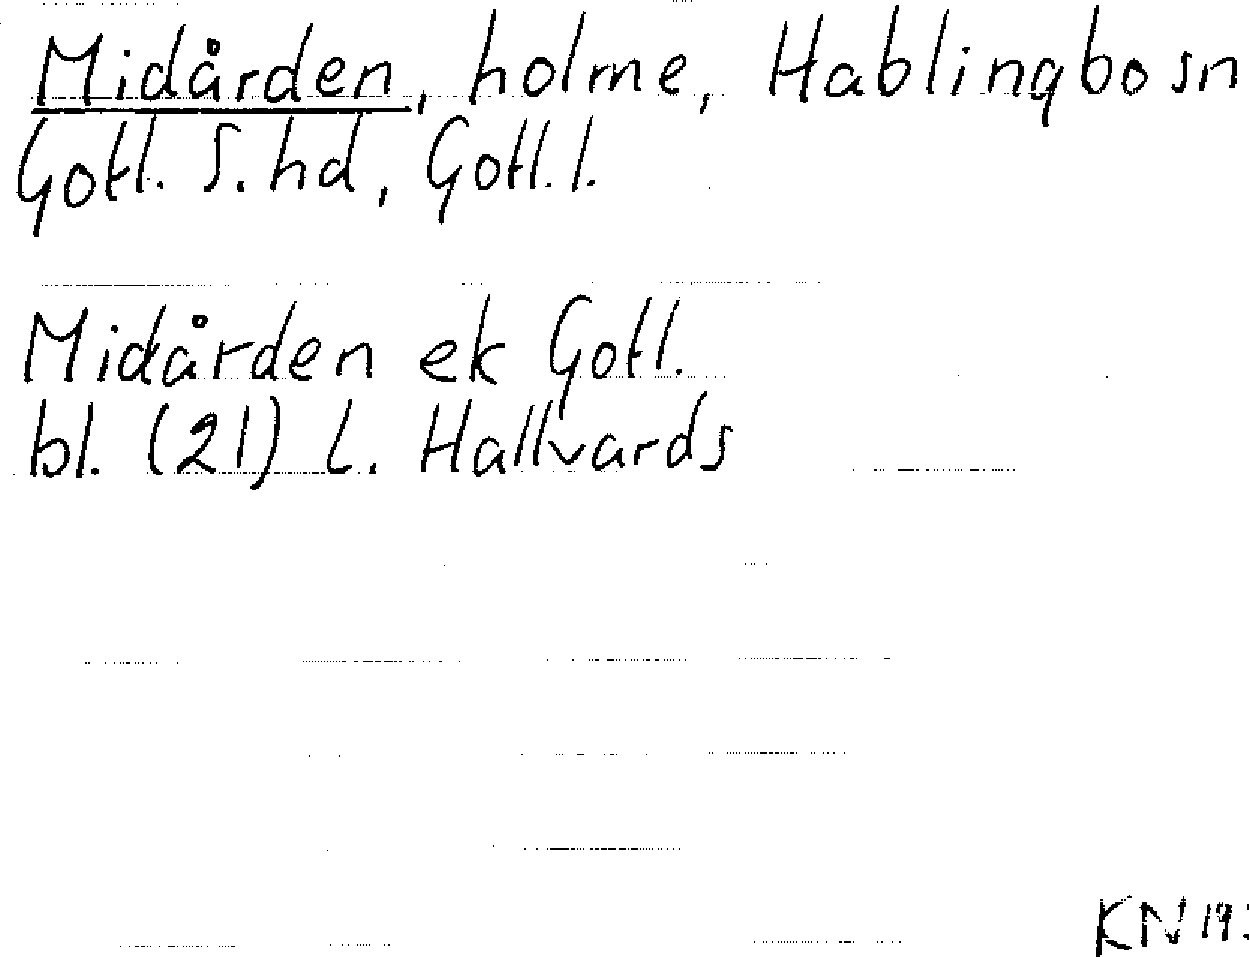 Midården, holme, Hablingbo sn
Gotl. S. hd, Gotl. l.
Midården ek Gotl.
bl. (21) l. Hallvards
KN